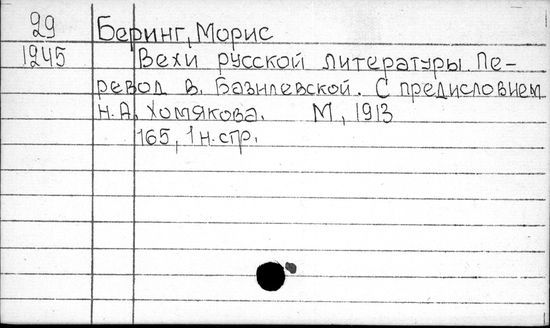 29 Беринг, Морис
1245 Вехи русской литературы. Пе-
ревод В. Базилевской. С предисловием
Н.А. Хомякова. М, 1913
165, 1 н. стр.